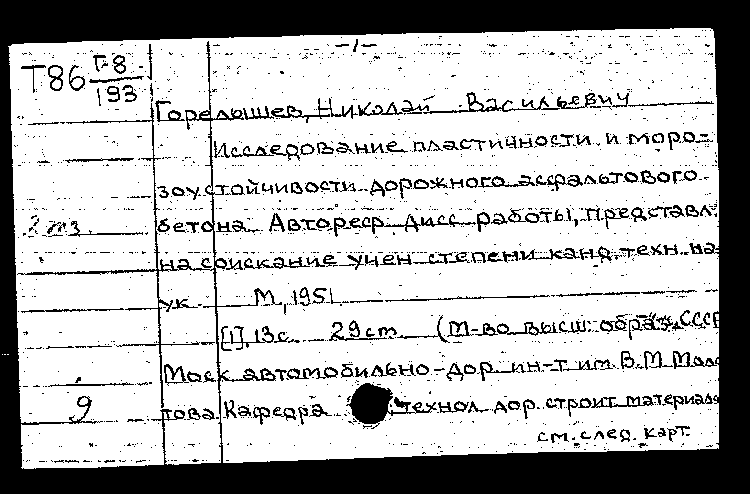 -1-
Т86 Г-8
193
Горелышев, Николай Васильевич
Исследование пластичности и моро-
зоустойчивости дорожного асфальтового
2 экз.
бетона. Автореф. дисс. работы, представл.
на соискание учен. степени канд. техн. на-
ук. М., 1951
[1], 13с. 29см. (М-во высш. образ. СССР
Моск. автомобильно-дор. ин-т им. В.М. Моло
9
това. Кафедра технол. дор. строит. материал
см. след. карт.